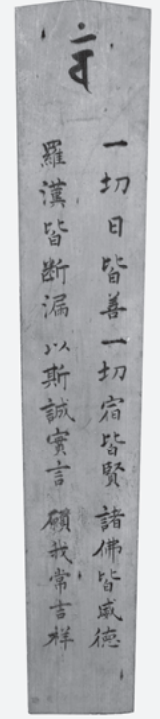 一切日皆善一切宿皆賢 諸佛皆威徳
羅漢皆断漏 以斯誠實言 願我常吉祥